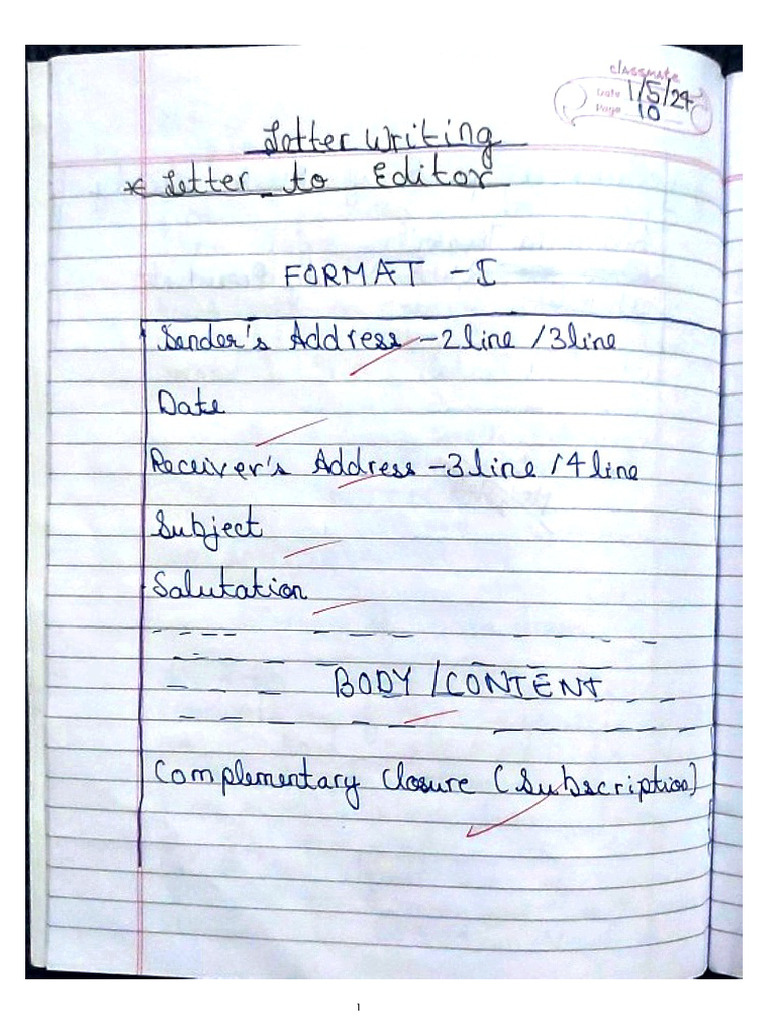 classmate
Date 1/5/24
Page 10
Letter Writing
* Letter to Editor
FORMAT - I
Sender's Address - 2 line / 3 line
Date
Receiver's Address - 3 line / 4 line
Subject
Salutation
BODY / CONTENT
Complementary Closure (Subscription)
1